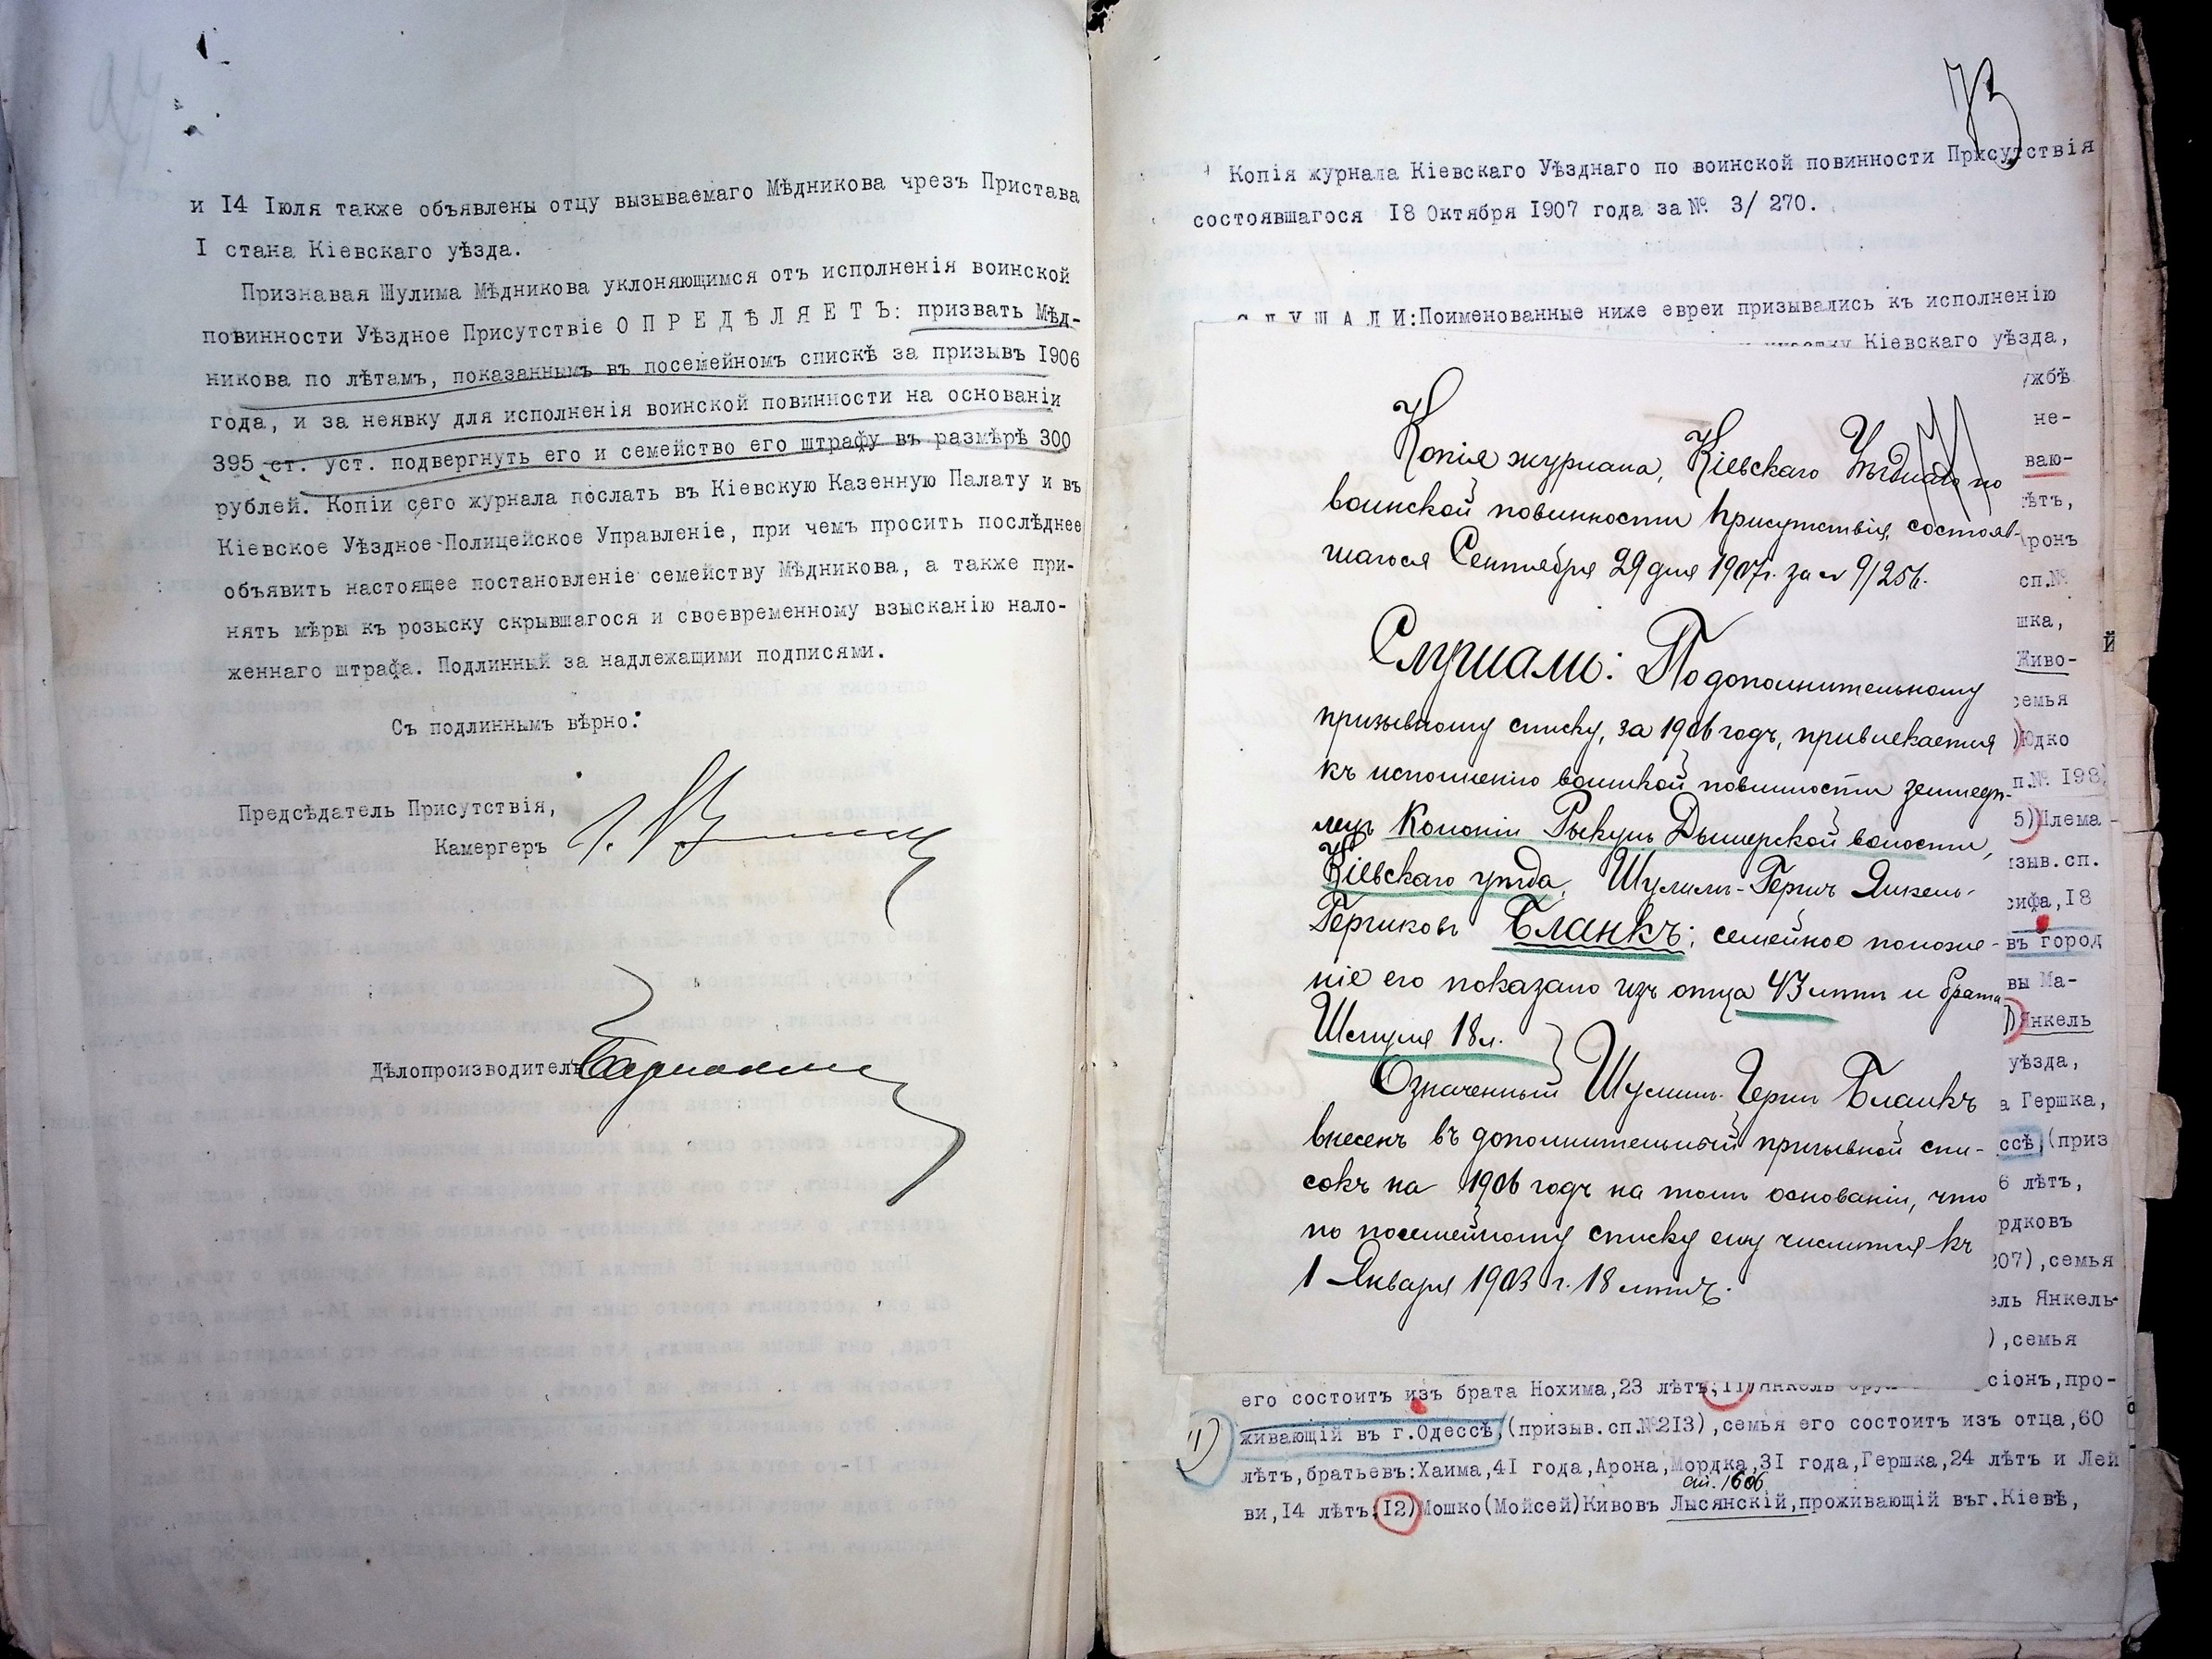 и 14 Іюля также объявлены отцу вызываемаго Мѣдникова чрезъ Пристава
I стана Кіевскаго уѣзда.
Признавая Шулима Мѣдникова уклоняющимся отъ исполненія воинской
повинности Уѣздное Присутствіе О П Р Е Д Ѣ Л Я Е Т Ъ: призвать Мѣд-
никова по лѣтамъ, показаннымъ въ посемейномъ спискѣ за призывъ 1906
года, и за неявку для исполненія воинской повинности на основаніи
395 ст. уст. подвергнуть его и семейство его штрафу въ размѣрѣ 300
рублей. Копіи сего журнала послать въ Кіевскую Казенную Палату и въ
Кіевское Уѣздное Полицейское Управленіе, при чемъ просить послѣднее
объявить настоящее постановленіе семейству Мѣдникова, а также при-
нять мѣры къ розыску скрывшагося и своевременному взысканію нало-
женнаго штрафа. Подлинный за надлежащими подписями.
Съ подлиннымъ вѣрно:
Предсѣдатель Присутствія,
Камергеръ
Дѣлопроизводитель
73
Копія журнала Кіевскаго Уѣзднаго по воинской повинности Присутствія
состоявшагося 18 Октября 1907 года за № 3/ 270.
С Л У Ш А Л И: Поименованные ниже евреи призывались къ исполненію
участку Кіевскаго уѣзда,
Копія журнала, Кіевскаго Уѣзднаго по
воинской повинности присутствія, состояв-
шагося Сентября 29 дня 1907г. за № 9/256.
Слушали: По дополнительному
призывному списку, за 1906 годъ, привлекается
къ исполненію воинской повинности земледѣ-
лецъ Колоніи Рыкунь Дымерской волости,
Кіевскаго уѣзда, Шулимъ-Гершъ Янкель-
Гершковъ Бланкъ; семейное положе-
ніе его показано изъ отца 43 лѣтъ и брата
Шмуля 18 л.
Означенный Шулимъ-Гершъ Бланкъ
внесенъ въ дополнительный призывной спи-
сокъ на 1906 годъ на томъ основаніи, что
по посемейному списку ему числится къ
1 Января 1903 г. 18 лѣтъ.
ужбѣ
не-
ваю-
ѣтъ,
ронъ
сп.№
шка,
Живо-
семья
)Юдко
п.№ 198)
5)Шлема-
изыв.сп.
сифа,18
въ город
вы Ма-
)Янкель
уѣзда,
а Гершка,
ссѣ,(приз
6 лѣтъ,
рдковъ
207),семья
эль Янкель-
),семья
его состоитъ изъ брата Нохима,23 лѣтъ;11)Янкель сіонъ,про-
11)
живающій въ г.Одессѣ,(призыв.сп.№213),семья его состоитъ изъ отца,60
лѣтъ,братьевъ:Хаима,41 года,Арона,Мордка,31 года,Гершка,24 лѣтъ и Лей
ви,14 лѣтъ;12)Мошко(Мойсей)Кивовъ Лысянскій,проживающій въг.Кіевѣ,